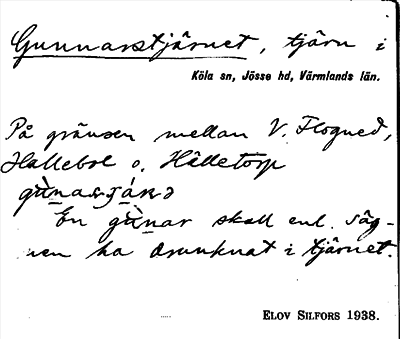 Gunnarstjärnet, tjärn i
Köla sn, Jösse hd, Värmlands län.
På gränsen mellan V. Flogned,
Hallebol o. Hålletorp
En gùnar skall enl. säg-
nen ha drunknat i tjärnet.
ELOV SILFORS 1938.